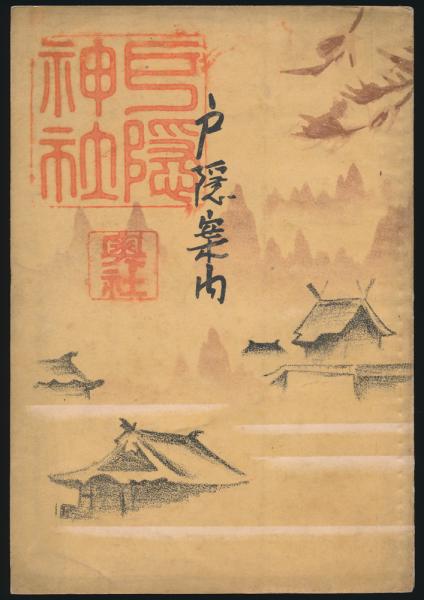 戸隠神社
戸隠案内
奥社